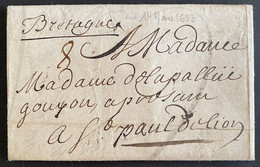 Bretagne
8 A Madame
Madame delapallüe
gouyon
a St paul de lion